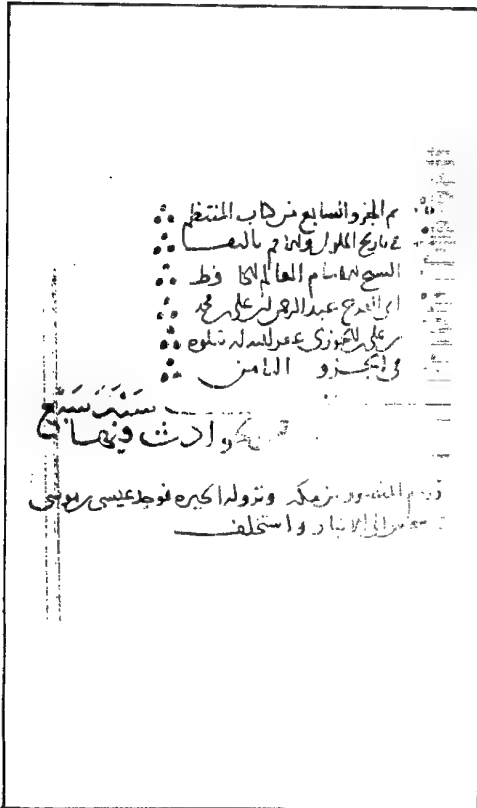 تم الجزو السابع من كتاب المنتظم
في تاريخ الملوك والامم تاليف
الشيخ الامام العالم الحافظ
ابي الفرج عبد الرحمن بن علي بن محمد
بن علي الجوزي عفر الله له تتلوه
في الجزو الثامن
سنة سبع
الحوادث فيها
قدوم المنصور من مكة ونزوله الحيره فوجد عيسى بن موسى
الى الانبار واستخلف